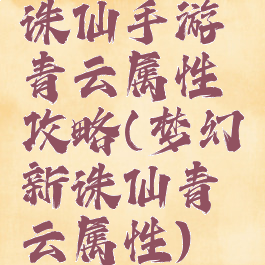 诛仙手游
青云属性
攻略(梦幻
新诛仙青
云属性)